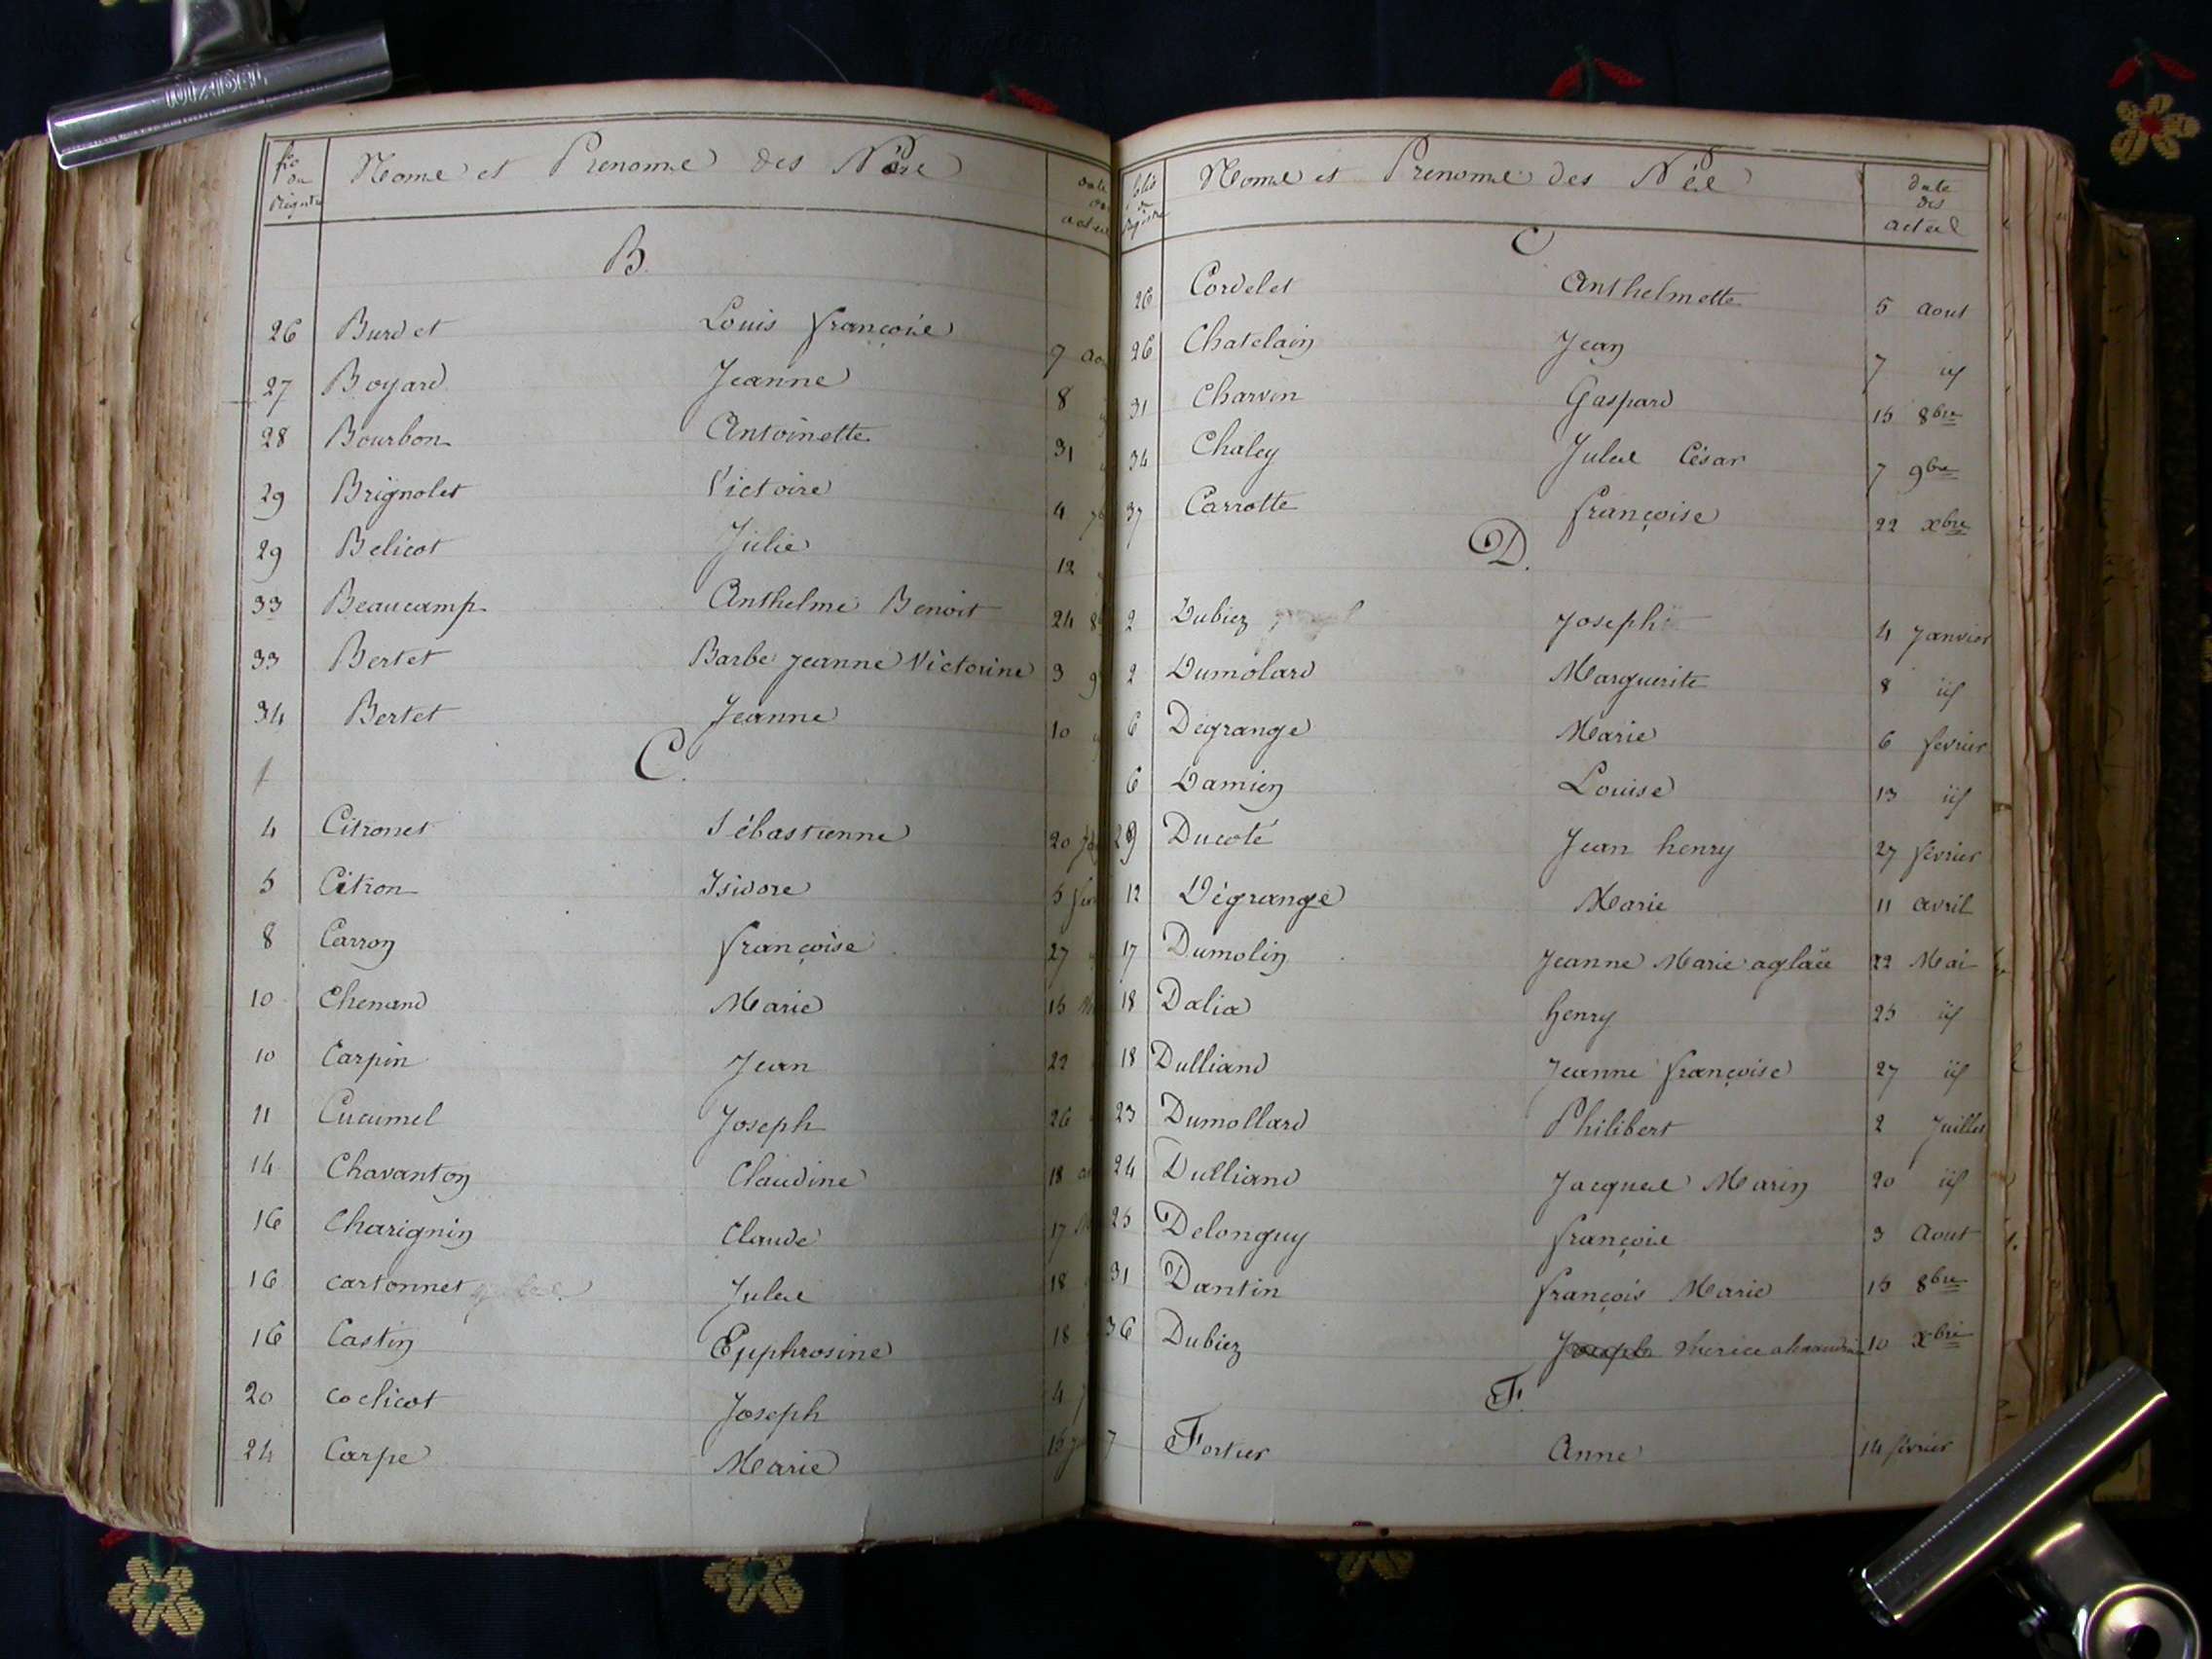 Noms et Prenoms des Nés
B.
26 Burdet Louis françois 7
27 Boyard Jeanne 8
28 Bourbon Antoinette 31
29 Brignolet Victoire 4
29 Belicot Julie 12
33 Beaucamp Anthelme Benoit 24
33 Bertet Barbe Jeanne Victorine 3
34 Bertet Jeanne 10
C.
4 Citronet Sébastienne 20
5 Citron Isidore 5
8 Carron françoise 27
10 Chenard Marie 15
10 Carpin Jean 22
11 Cucumel Joseph 26
14 Chavanton Claudine 18
16 Charignin Claude 17
16 Cartonnet Jules 18
16 Castin Euphrosine 18
20 Coclicot Joseph 4
24 Carpe Marie 15
folio du Registre Noms et Prenoms des Nés date des actes
C
26 Cordelet Anthelmette 5 aout
26 Chatelain Jean 7 id
31 Charvin Gaspard 15 8bre
34 Chaley Jules César 7 9bre
37 Carrotte françoise 22 xbre
D.
2 Dubiez Joseph 4 Janvier
2 Dumolard Marguerite 8 id
6 Degrange Marie 6 fevrier
6 Damien Louise 13 id
9 Ducoté Jean henry 27 février
12 Dégrange Marie 11 avril
17 Dumolin Jeanne Marie aglaë 22 Mai
18 Dalia henry 25 id
18 Dulliand Jeanne françoise 27 id
23 Dumollard Philibert 2 Juillet
24 Dulliand Jacques Marin 20 id
25 Delonguy françois 3 Aout
31 Dantin françois Marie 15 8bre
36 Dubiez Joseph 10 xbre
F.
7 Fortier Anne 14 février